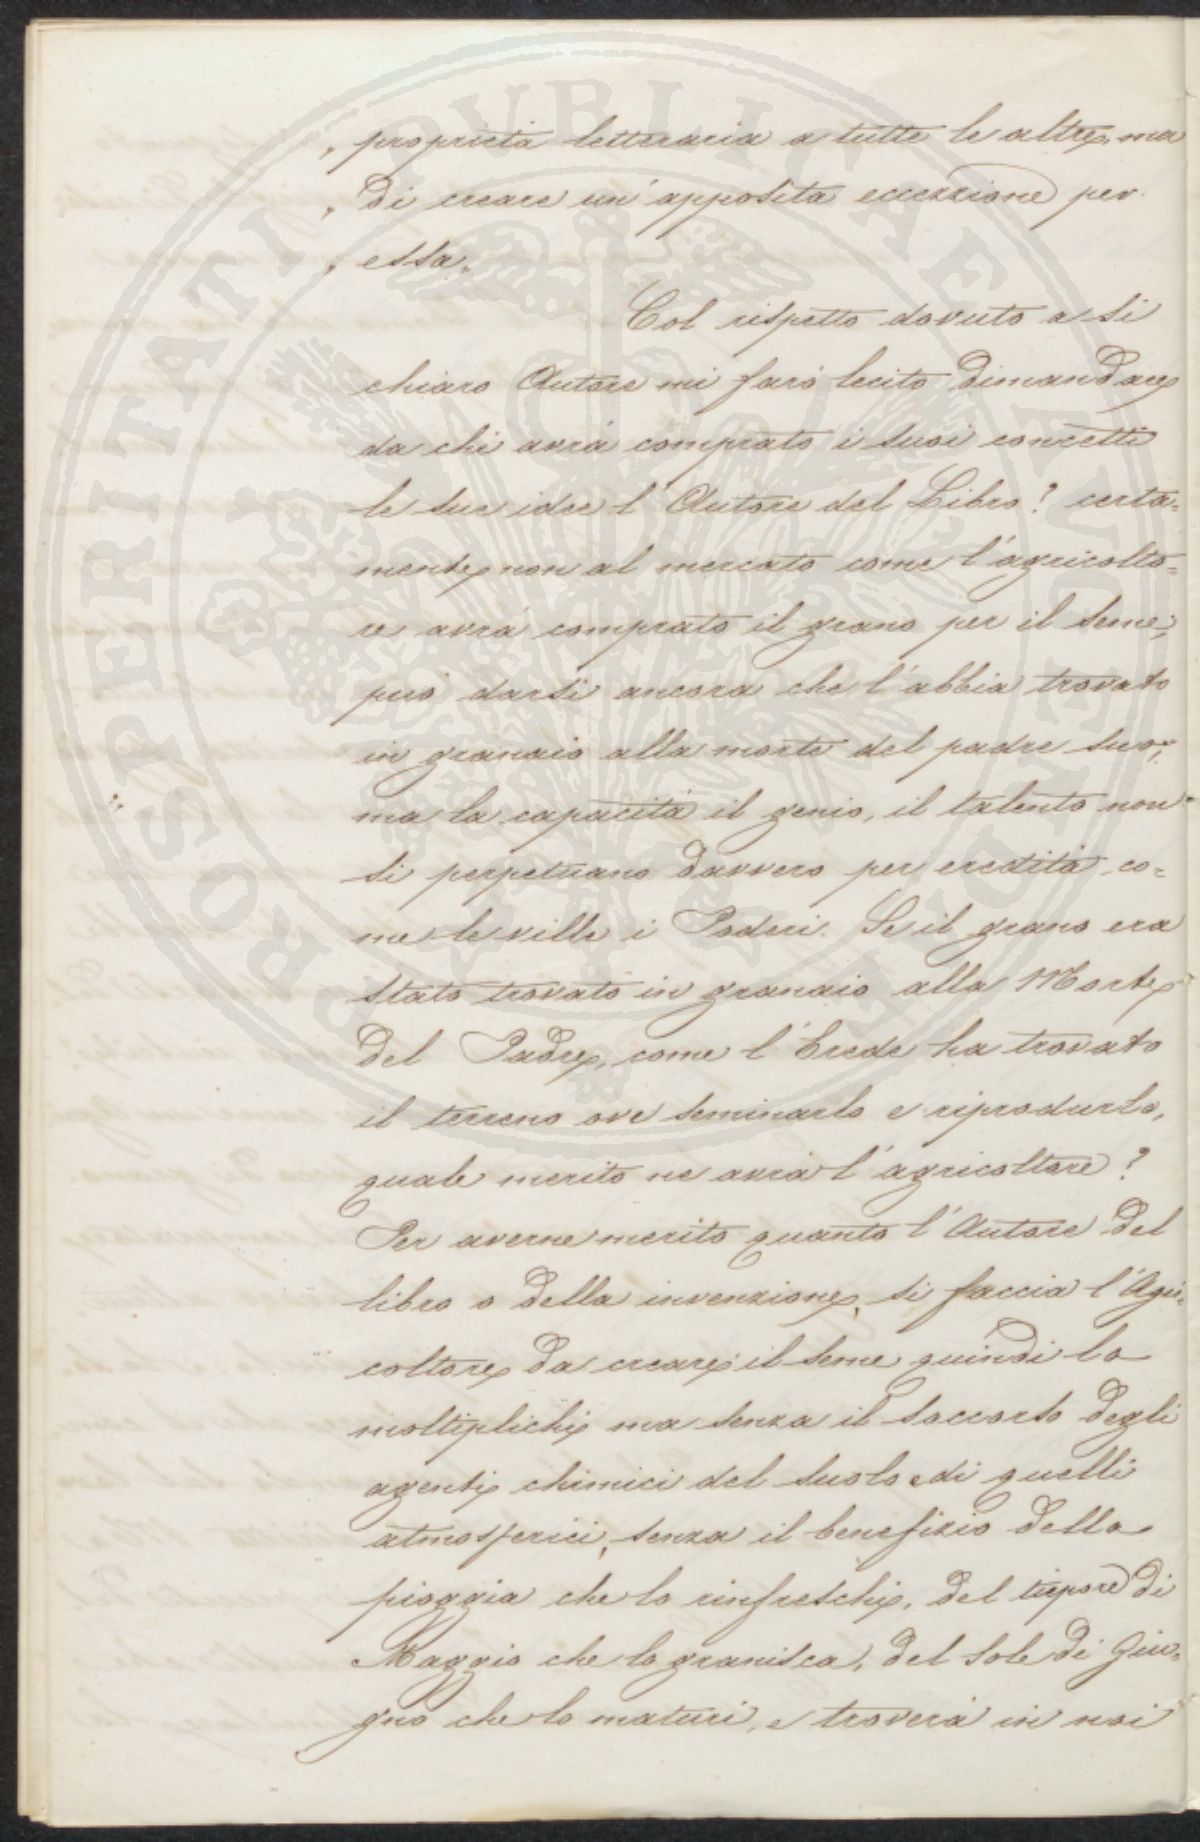 „ proprietà letteraria a tutte le altre, ma
„ di creare un' apposita eccezzione per
„ essa.
Col rispetto dovuto a si
chiaro Autore mi farò lecito dimandare
da chi avrà comprato i suoi concetti
le sue idee l' Autore del Libro? certa=
mente non al mercato come l' agricolto=
re avrà comprato il grano per il seme;
può darsi ancora che l' abbia trovato
in granaio alla morte del padre suo;
ma la capacità il genio, il talento non
si perpetuano davvero per eredità co=
me le ville i Poderi. Se il grano era
stato trovato in granaio alla Morte
del Padre, come l' Erede ha trovato
il terreno ove seminarlo e riprodurlo,
quale merito ne avrà l' agricoltore?
Per averne merito quanto l' Autore del
libro o della invenzione, si faccia l' Agri=
coltore da creare il seme quindi lo
moltiplichi ma senza il soccorso degli
agenti chimici del suolo e di quelli
atmosferici, senza il benefizio della
pioggia che lo rinfreschi, del tiepore di
Maggio che lo granisca, del Sole di Giu=
gno che lo maturi, e troverà in noi
PROSPERITATI PVBLICAE AVGENDAE